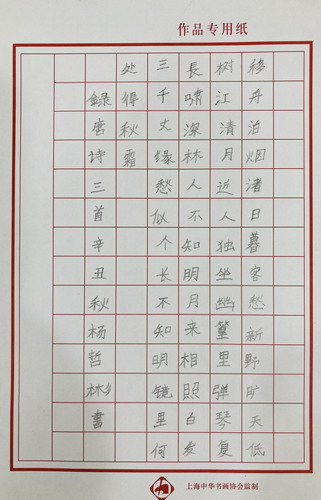 作品专用纸
移舟泊烟渚日暮客愁新野旷天低
树江清月近人独坐幽篁里弹琴复
長啸深林人不知明月来相照白发
三千丈缘愁似个长不知明镜里何
处得秋霜
録唐诗三首辛丑秋杨哲彬書
上海中华书画协会监制